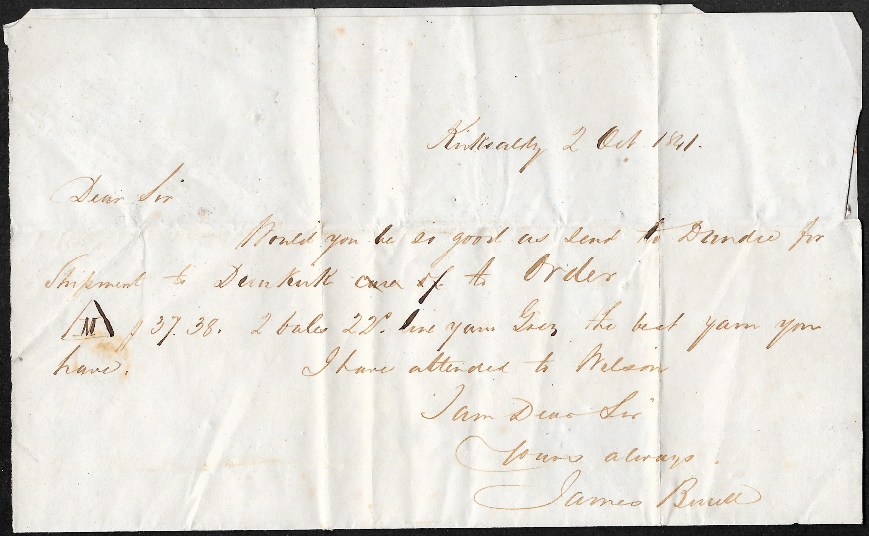 Kirkcaldy 2 Oct 1841.
Dear Sir
Would you be so good as send to Dundee for
Shipment to Dunkirk to Order
M 37. 38. 2 bales line yarn the best yarn you
have. I have attended to Wilson
I am Dear Sir
Yours always
James